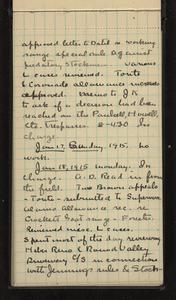 approved letter to Dist. on working
range special rule against
predatory, Stockmen. Various
L cases reviewed. Tonto
& Coronado allowance increase
approved. Memo to J K
to ask if a decision had been
reached on the Powell,
etc. Trespasses. 8-4:30 In
charge.
Jan 17, Sunday, 1915. No
work.
Jan 18, 1915 Monday. In
charge. A. D. Read in from
the field. Two Brown appeals
- Tonto - submitted to Supervisor
Alamo allowance, rec. on
Crockett East range - Forests.
Reviewed misc. L cases.
Spent most of the day reviewing
Hdes Reno & Round Valley
Driveway C/S in connection
with Jennings rules & Stock-